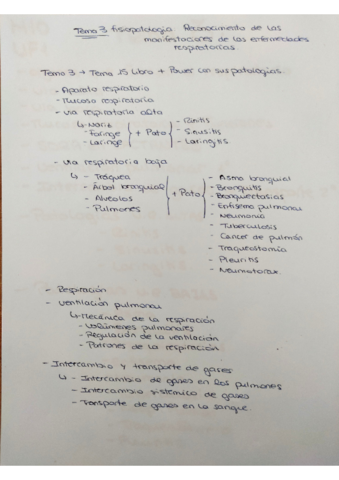 Tema 3 Fisiopatologia. Reconocimiento de las
manifestaciones de las enfermedades
respiratorias
Tema 3 → Tema 15 Libro + Power con sus patologías.
- Aparato respiratorio
- Mucosa respiratoria
- Via respiratoria alta
↳ - Nariz
- Faringe
- Laringe
+ Pato
- Rinitis
- Sinusitis
- Laringitis
- Via respiratoria baja
↳ - Tráquea
- Árbol bronquial
- Alveolos
- Pulmones
+ Pato
- Asma bronquial
- Bronquitis
- Bronquiectasias
- Enfisema pulmonar
- Neumonia
- Tuberculosis
- Cancer de pulmón
- Traqueostomia
- Pleuritis
- Neumotorax
- Respiración
- Ventilación pulmonar
↳ - Mecánica de la respiración
- Volúmenes pulmonares
- Regulación de la ventilación
- Patrones de la respiración
- Intercambio y transporte de gases
↳ - Intercambio de gases en los pulmones
- Intercambio sistemico de gases
- Transporte de gases en la sangre